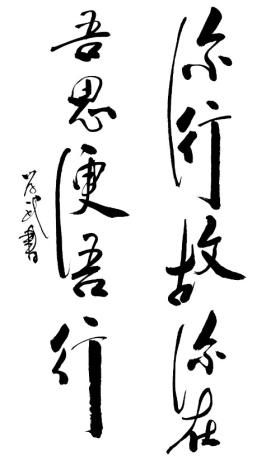 你行故你在
吾思便吾行
武書